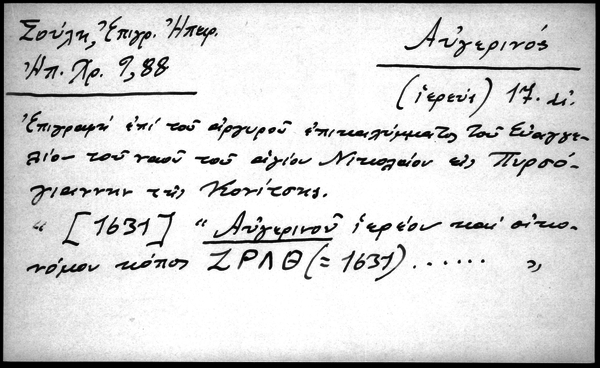 Σούλη, Ἐπιγρ. Ἠπειρ.
Ἠπ. Χρ. 9, 88
Αὐγερινός
(ἱερεύς) 17. αἰ.
Ἐπιγραφή ἐπί τοῦ ἀργυροῦ ἐπικαλύμματος τοῦ Εὐαγγε-
λίο- τοῦ ναοῦ τοῦ ἁγίου Νικολάου εἰς Πυρσό-
γιαννην τῆς Κονίτσης.
" [1631] " Αὐγερινοῦ ἱερέου καί οἰκο-
νόμου κόπος ΖΡΛΘ (= 1631) ...... "